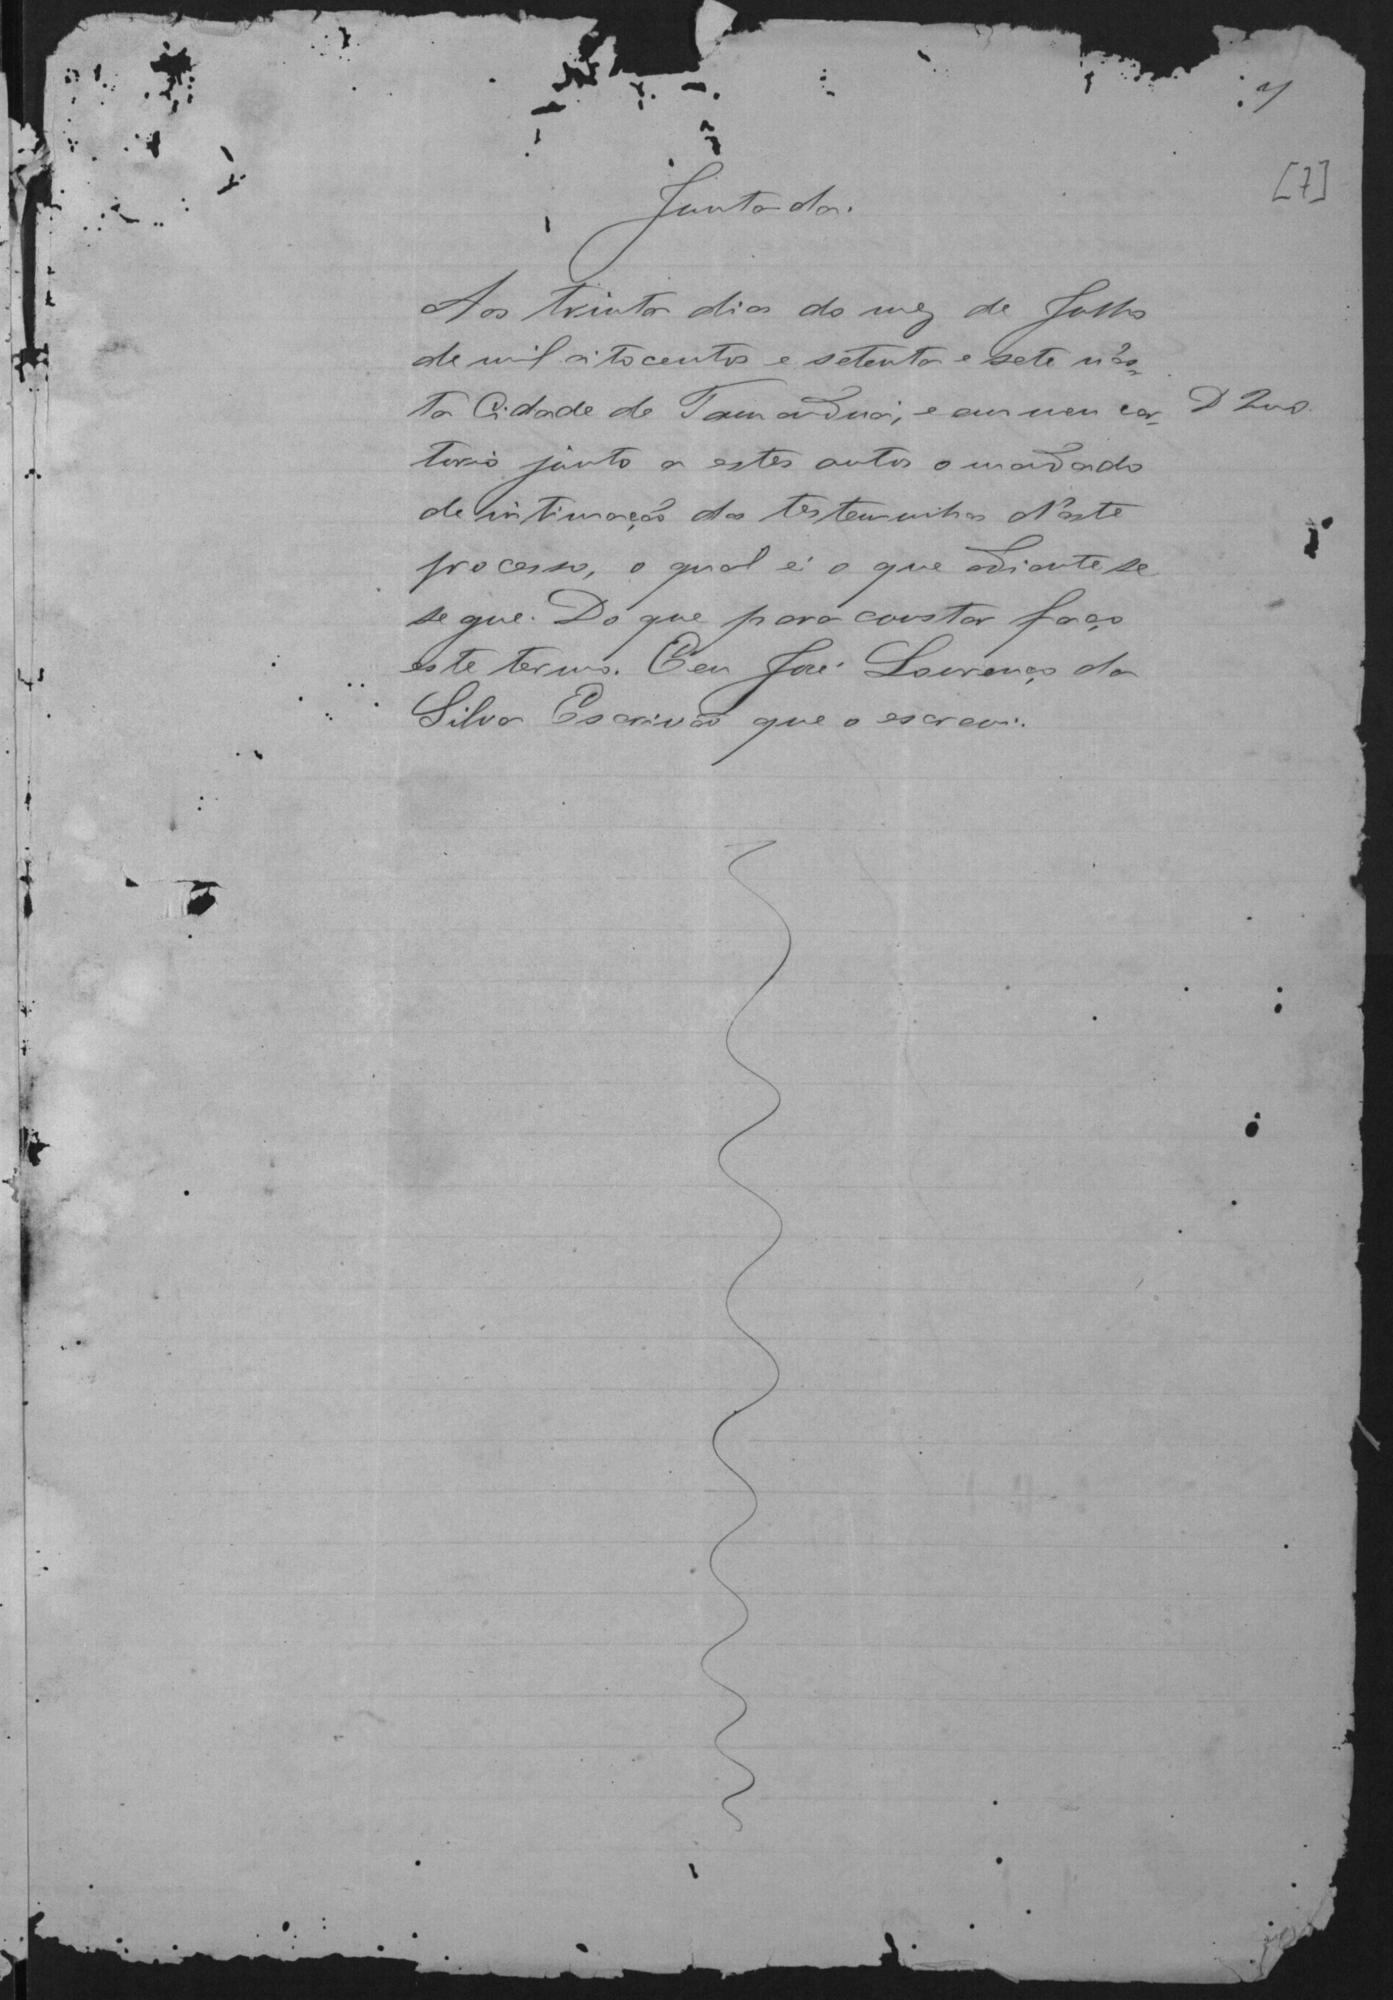 7
[7]
Juntada.
Aos trinta dias do mez de Julho
de mil oitocentos e setenta e sete nes-
ta Cidade de Tamanduá, e em meu car-
D 200
torio junto a estes autos o mandado
de intimação das testemunhas d'este
processo, o qual é o que adiante se
segue. Do que para constar faço
este termo. Eeu José Lourenço da
Silva Escrivão que o escrevi.